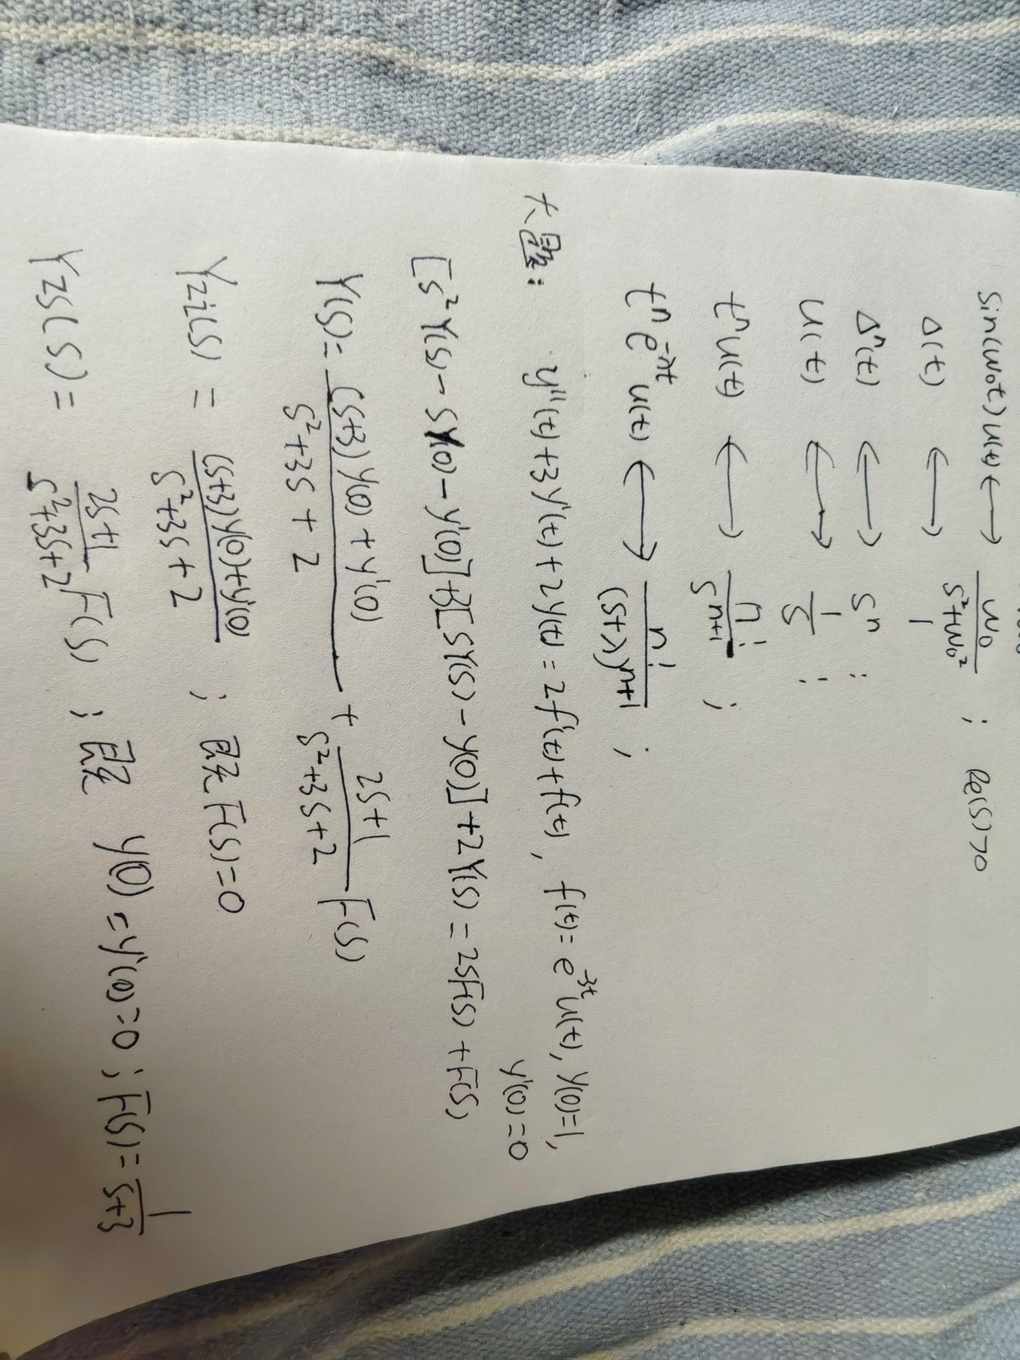 sin(ω₀t)u(t) ⟷ ω₀/(s²+ω₀²) ; Re(s)>0
Δ(t) ⟷ 1
Δⁿ(t) ⟷ sⁿ ;
u(t) ⟷ 1/s ;
tⁿu(t) ⟷ n!/sⁿ⁺¹ ;
tⁿe^(-λt)u(t) ⟷ n!/(s+λ)ⁿ⁺¹ ;
大题: y''(t)+3y'(t)+2y(t)=2f'(t)+f(t), f(t)=e^(-3t)u(t), y(0)=1,
y'(0)=0
[s²Y(s)-sy(0)-y'(0)]+3[sY(s)-y(0)]+2Y(s)=2sF(s)+F(s)
Y(s)= ((s+3)y(0)+y'(0))/(s²+3s+2) + (2s+1)/(s²+3s+2) F(s)
Yzi(s) = ((s+3)y(0)+y'(0))/(s²+3s+2) ; F(s)=0
Yzs(s) = (2s+1)/(s²+3s+2) F(s) ; y(0)=y'(0)=0 ; F(s)=1/(s+3)